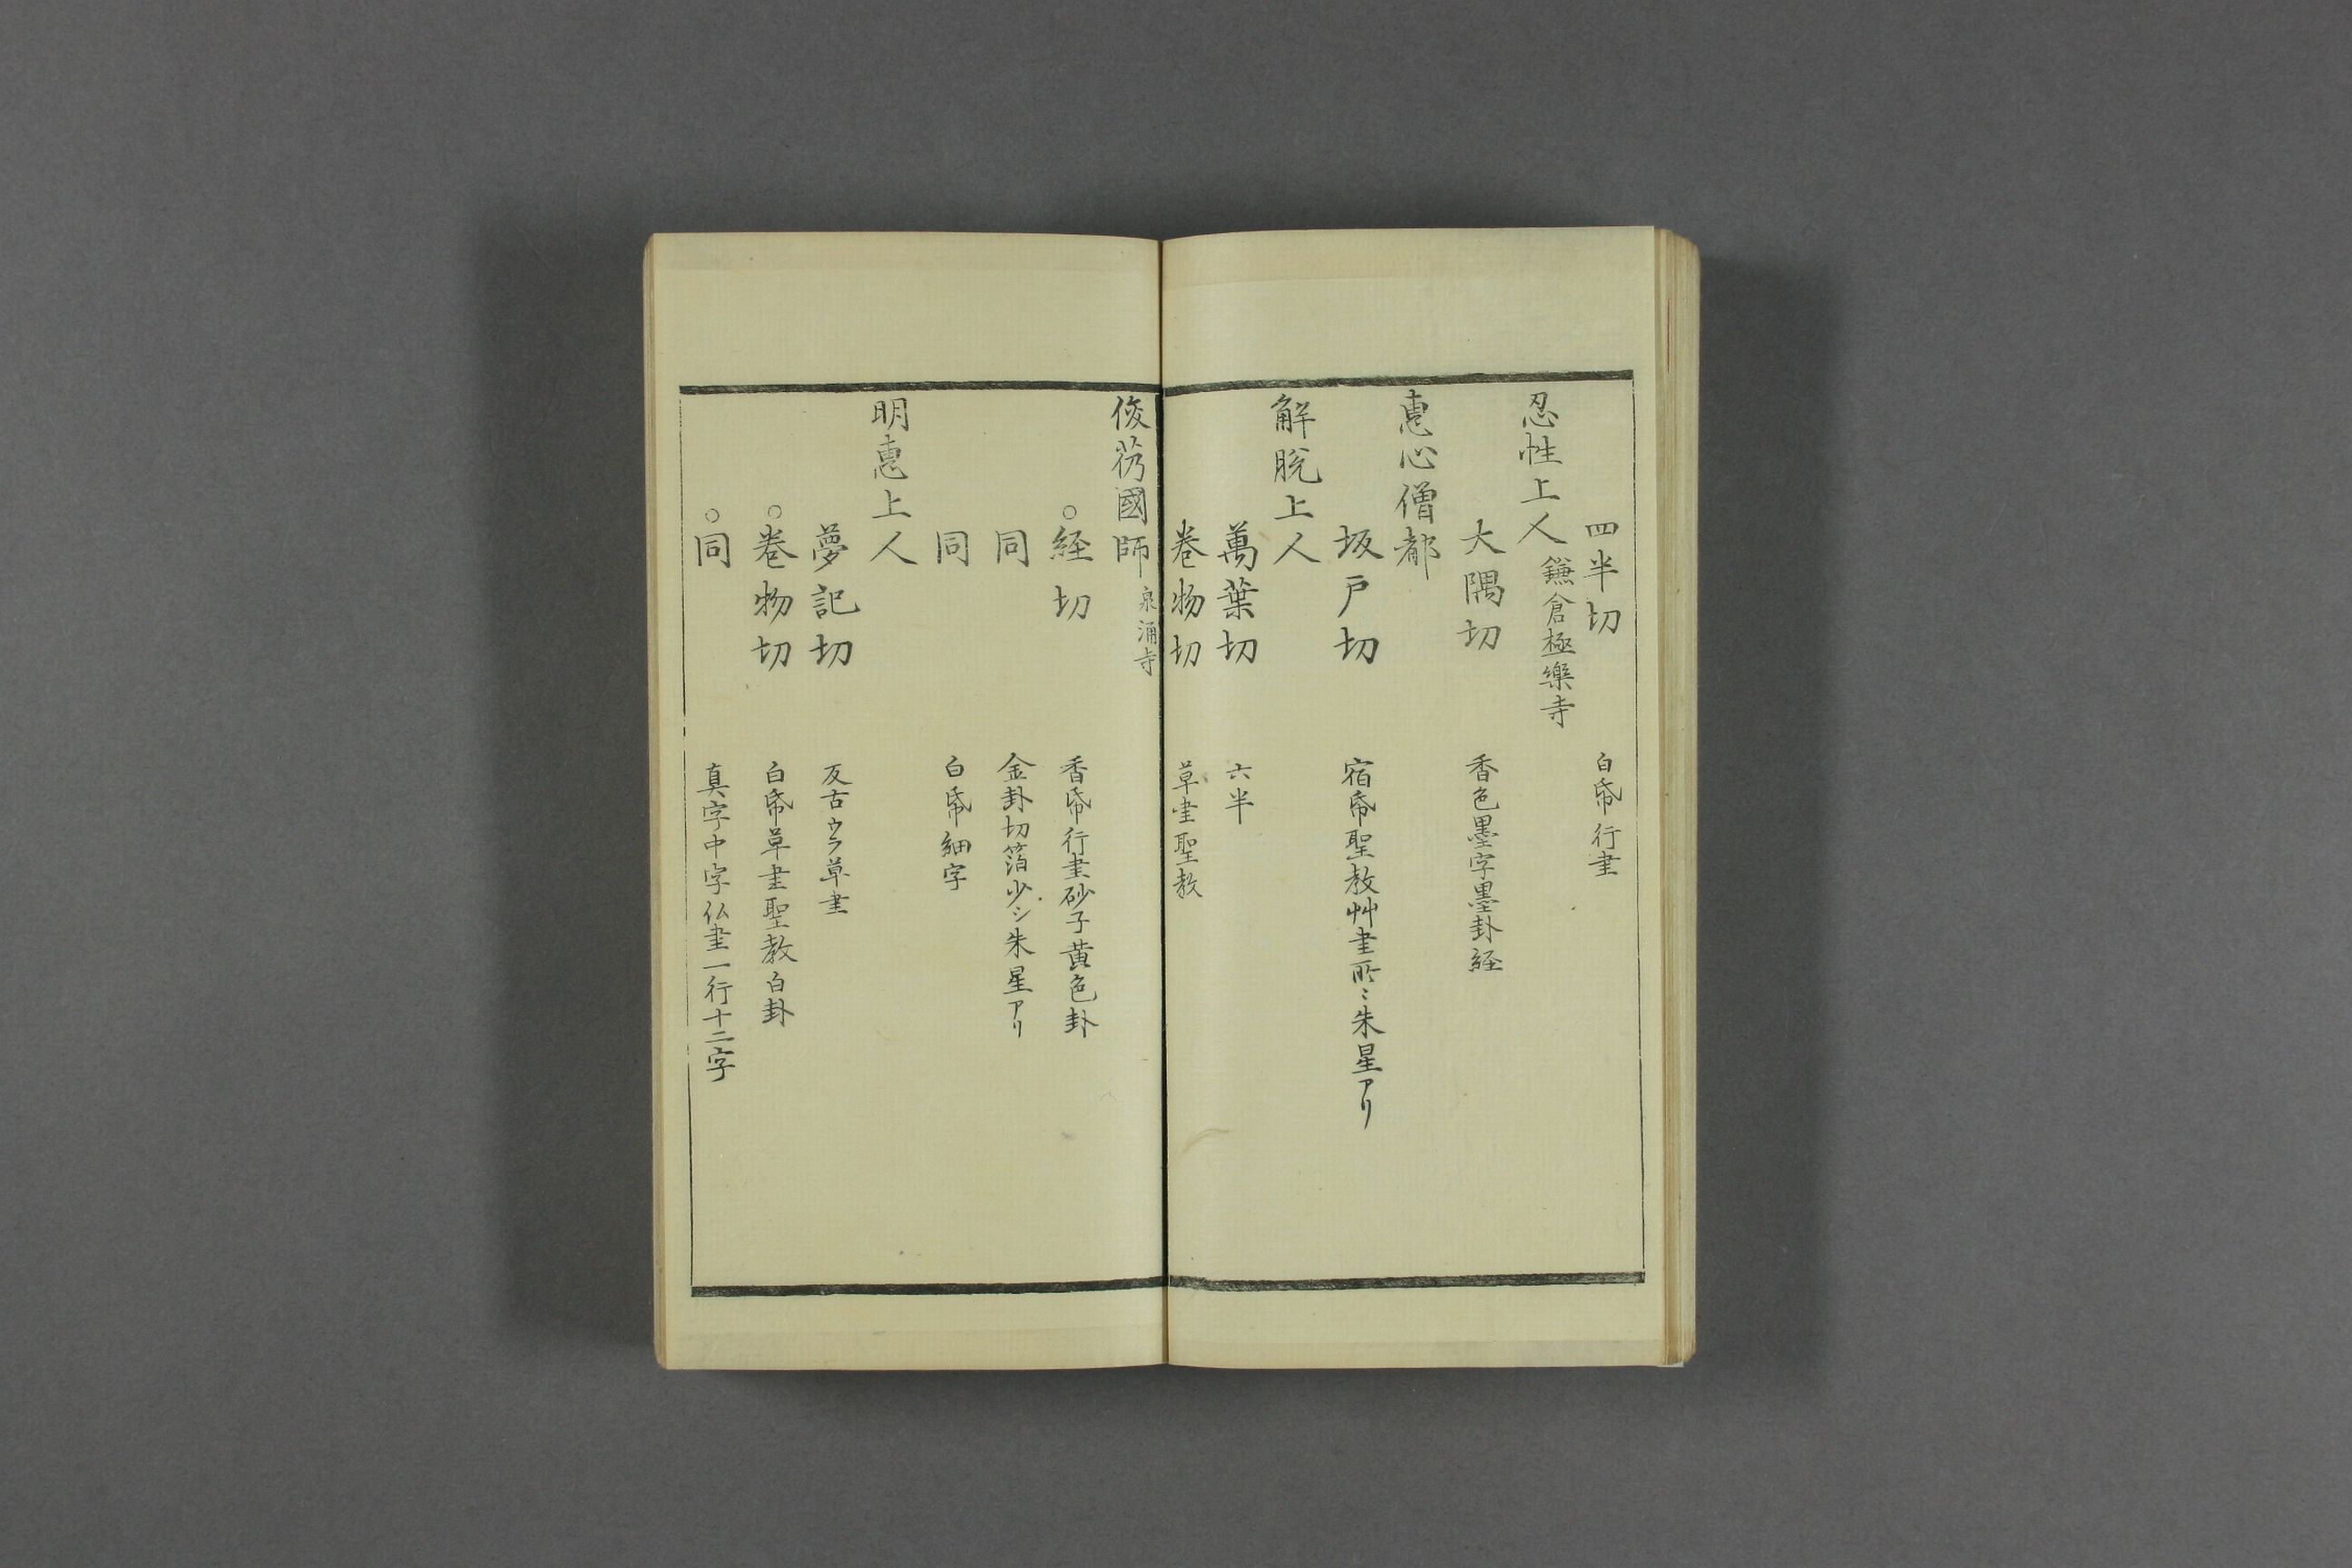 四半切 白帋行書
忍性上人 鎌倉極樂寺
大隅切 香色墨字墨卦経
恵心僧都
坂戸切 宿帋聖教艸書所〻朱星アリ
解脱上人
萬葉切 六半
巻物切 草書聖教
俊芿國師 泉涌寺
○経切 香帋行書砂子黄色卦
同 金卦切箔少シ朱星アリ
同 白帋細字
明恵上人
夢記切 反古ウラ草書
○巻物切 白帋草書聖教白卦
○同 真字中字仏書一行十二字